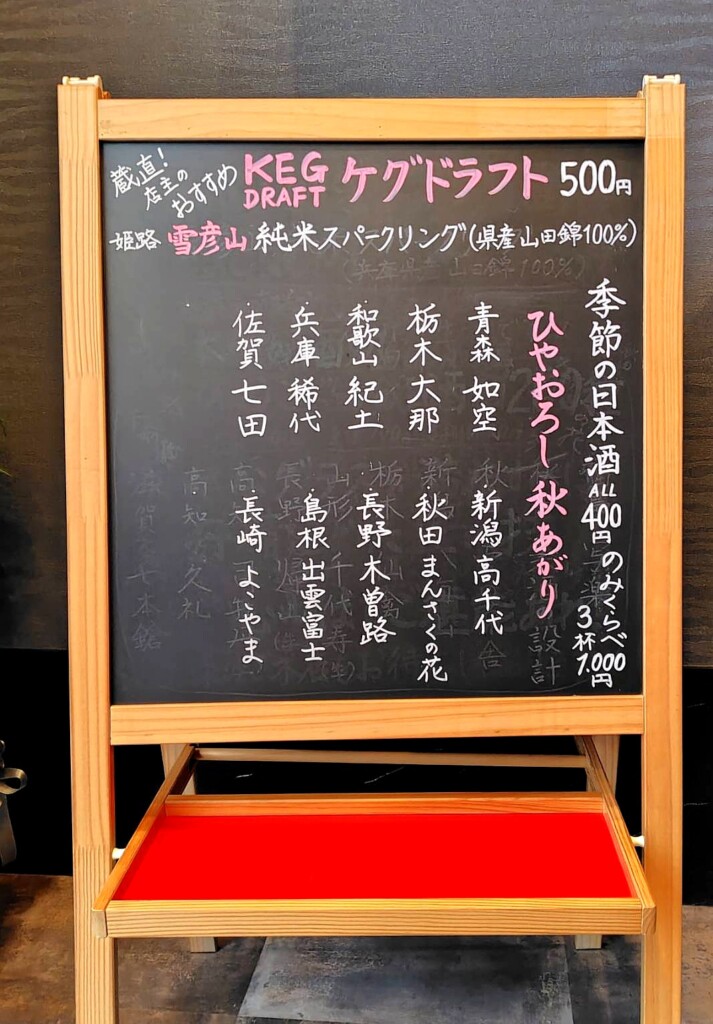 蔵直!
店主の
おすすめ
KEG
DRAFT
ケグドラフト 500円
姫路 雪彦山 純米スパークリング(県産山田錦100%)
季節の日本酒 ALL 400円 のみくらべ 3杯 1,000円
ひやおろし 秋あがり
・青森 如空
・新潟 高千代
・栃木 大那
・秋田 まんさくの花
・和歌山 紀土
・長野 木曽路
・兵庫 稀代
・島根 出雲富士
・佐賀 七田
・長崎 よこやま